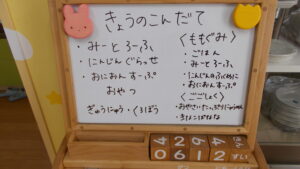 きょうのこんだて
・みーとろーふ
・にんじんぐらっせ
・おにおんすーぷ
おやつ
ぎゅうにゅう・くろぼう
〈ももぐみ〉
・ごはん
・みーとろーふ
・にんじんのふくめに
・おにおんすーぷ
〈ごごしょく〉
・おやさいたっぷり
4 2 2
0 6 1 2 すい